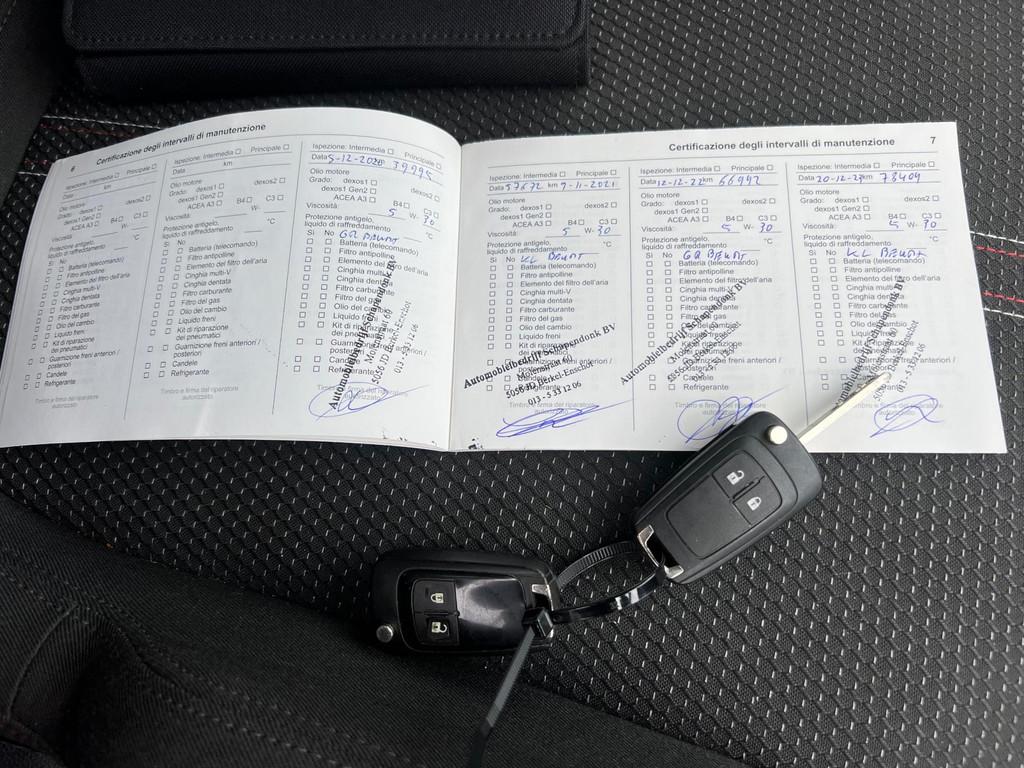 6
Certificazione degli intervalli di manutenzione
Ispezione: Intermedia ☐ Principale ☐
Data km
Olio motore
Grado: dexos1 ☐ dexos2 ☐
dexos1 Gen2 ☐
ACEA A3 ☐ B4 ☐ C3 ☐
Viscosità: W-
Protezione antigelo, °C
liquido di raffreddamento
Sì No
☐ ☐ Batteria (telecomando)
☐ ☐ Filtro antipolline
☐ ☐ Elemento del filtro dell'aria
☐ ☐ Cinghia multi-V
☐ ☐ Cinghia dentata
☐ ☐ Filtro carburante
☐ ☐ Filtro del gas
☐ ☐ Olio del cambio
☐ ☐ Liquido freni
☐ ☐ Kit di riparazione
dei pneumatici
☐ ☐ Guarnizione freni anteriori /
posteriori
☐ ☐ Candele
☐ ☐ Refrigerante
Timbro e firma del riparatore
autorizzato
Ispezione: Intermedia ☐ Principale ☐
Data km
Olio motore
Grado: dexos1 ☐ dexos2 ☐
dexos1 Gen2 ☐
ACEA A3 ☐ B4 ☐ C3 ☐
Viscosità: W-
Protezione antigelo, °C
liquido di raffreddamento
Sì No
☐ ☐ Batteria (telecomando)
☐ ☐ Filtro antipolline
☐ ☐ Elemento del filtro dell'aria
☐ ☐ Cinghia multi-V
☐ ☐ Cinghia dentata
☐ ☐ Filtro carburante
☐ ☐ Filtro del gas
☐ ☐ Olio del cambio
☐ ☐ Liquido freni
☐ ☐ Kit di riparazione
dei pneumatici
☐ ☐ Guarnizione freni anteriori /
posteriori
☐ ☐ Candele
☐ ☐ Refrigerante
Timbro e firma del riparatore
autorizzato
Ispezione: Intermedia ☐ Principale ☐
Data 5-12-2020 39995
Olio motore
Grado: dexos1 ☐ dexos2 ☐
dexos1 Gen2 ☐
ACEA A3 ☐ B4 ☐ C3 ☐
Viscosità: 5 W- 30
Protezione antigelo, °C
liquido di raffreddamento
Sì No
☐ ☐ Batteria (telecomando)
☐ ☐ Filtro antipolline
☐ ☐ Elemento del filtro dell'aria
☐ ☐ Cinghia multi-V
☐ ☐ Cinghia dentata
☐ ☐ Filtro carburante
☐ ☐ Filtro del gas
☐ ☐ Olio del cambio
☐ ☐ Liquido
☐ ☐ Kit di riparazione
☐ ☐ anteriori /
☐ ☐ Candele
☐ ☐
Automobielbedrijf Schapendonk BV
5056 JD Berkel-Enschot
013 - 533 12 06
7
Certificazione degli intervalli di manutenzione
Ispezione: Intermedia ☐ Principale ☐
Data 57672 km 9-11-2021
Olio motore
Grado: dexos1 ☐ dexos2 ☐
dexos1 Gen2 ☐
ACEA A3 ☐ B4 ☐ C3 ☐
Viscosità: 5 W- 30
Protezione antigelo, °C
liquido di raffreddamento
Sì No
☐ ☐ Batteria (telecomando)
☐ ☐ Filtro antipolline
☐ ☐ Elemento del filtro dell'aria
☐ ☐ Cinghia multi-V
☐ ☐ Cinghia dentata
☐ ☐ Filtro carburante
☐ ☐ Filtro del gas
☐ ☐ Olio del cambio
☐ ☐ Liquido freni
☐ ☐ Kit di
Automobielbedrijf Schapendonk BV
5056 JD Berkel-Enschot
013 - 533 12 06
autorizzato
Ispezione: Intermedia ☐ Principale ☐
Data 12-12-22 km 66992
Olio motore
Grado: dexos1 ☐ dexos2 ☐
dexos1 Gen2 ☐
ACEA A3 ☐ B4 ☐ C3 ☐
Viscosità: 5 W- 30
Protezione antigelo, °C
liquido di raffreddamento
Sì No
☐ ☐ Batteria (telecomando)
☐ ☐ Filtro antipolline
☐ ☐ Elemento del filtro dell'aria
☐ ☐ Cinghia multi-V
☐ ☐ Cinghia dentata
☐ ☐ Filtro carburante
☐ ☐ Filtro del gas
☐ ☐ Olio del cambio
Automobielbedrijf Schapendonk BV
☐ ☐ Refrigerante
Ispezione: Intermedia ☐ Principale ☐
Data 20-12-23 km 73409
Olio motore
Grado: dexos1 ☐ dexos2 ☐
dexos1 Gen2 ☐
ACEA A3 ☐ B4 ☐ C3 ☐
Viscosità: 5 W- 30
Protezione antigelo, °C
liquido di raffreddamento
Sì No
☐ ☐ Batteria (telecomando)
☐ ☐ Filtro antipolline
☐ ☐ Elemento del filtro dell'aria
☐ ☐ Cinghia multi-V
☐ ☐ Cinghia dentata
☐ ☐ Filtro carburante
☐ ☐ Filtro del gas
☐ ☐ Olio del cambio
☐ ☐ Liquido freni
013 - 533 12 06